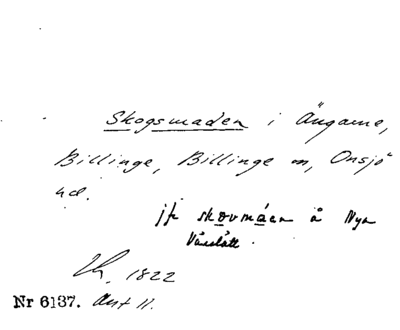 Skogsmaden i Ängarne,
Billinge, Billinge sn, Onsjö
hd.
jfr skovmáen å Nya
Vårslått.
Lh. 1822
Nr 6137. Ant 11.